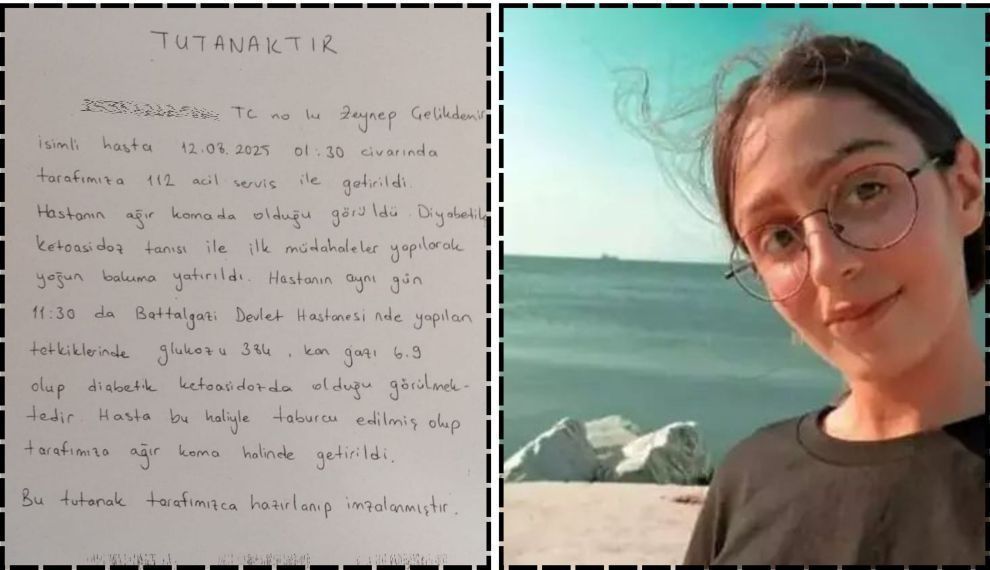 TUTANAKTIR
TC no lu Zeynep Gelikdenir
isimli hasta 12.08.2025 01:30 civarında
tarafımıza 112 acil servis ile getirildi.
Hastanın ağır komada olduğu görüldü. Diyabetik
ketoasidoz tanısı ile ilk müdahaleler yapılarak
yoğun bakıma yatırıldı. Hastanın aynı gün
11:30 da Battalgazi Devlet Hastanesi nde yapılan
tetkiklerinde glukozu 384, kan gazı 6.9
olup diabetik ketoasidozda olduğu görülmek-
tedir. Hasta bu haliyle taburcu edilmiş olup
tarafımıza ağır koma halinde getirildi.
Bu tutanak tarafımızca hazırlanıp imzalanmıştır.